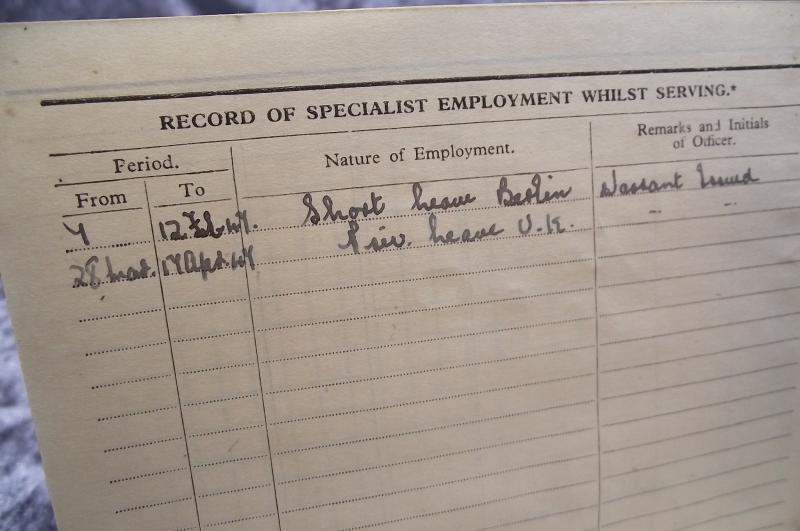 RECORD OF SPECIALIST EMPLOYMENT WHILST SERVING.*
Period.
Nature of Employment.
Remarks and Initials
of Officer.
From
To
7 12.Feb.47. Short Leave Berlin Warrant Issued
28 Mar. 17 Apr. 47 Priv. Leave U.K. - -